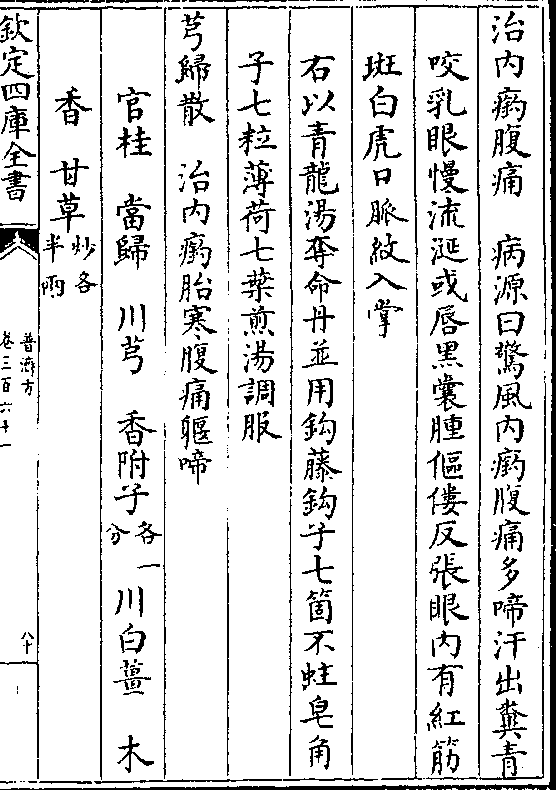 治内瘹腹痛　病源曰驚風内瘹腹痛多啼汗出糞青
咬乳眼慢流涎或唇黑囊腫傴僂反張眼内有紅筋
斑白虎口脈紋入掌
右以青龍湯奪命丹並用鈎藤鈎子七箇不蛀皂角
子七粒薄荷七葉煎湯調服
芎歸散　治内瘹胎寒腹痛軀啼
官桂　當歸　川芎　香附子各一分　川白薑　木
香　甘草炒各半兩
欽定四庫全書
普濟方
卷三百六十一
八十